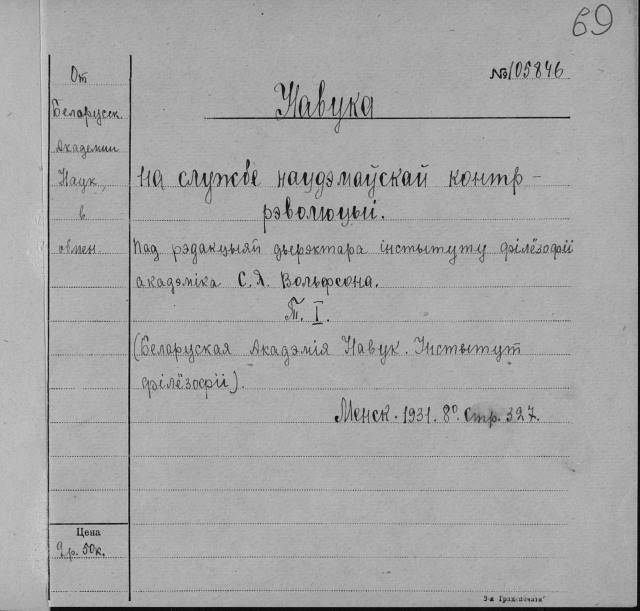 69
№ 105846
От
Беларусск.
Академии
Наук,
в
обмен.
Навука
на службе наудэмаўскай контр-
рэволюцыі.
Пад рэдакцыяй дырэктара інстытуту філёзофіі
акадэміка С. Я. Вольфсона.
Т. I.
(Беларуская Акадэмія Навук. Інстытут
філёзофіі).
Менск. 1931. 8°. стр. 327.
Цена
2 р. 50 к.